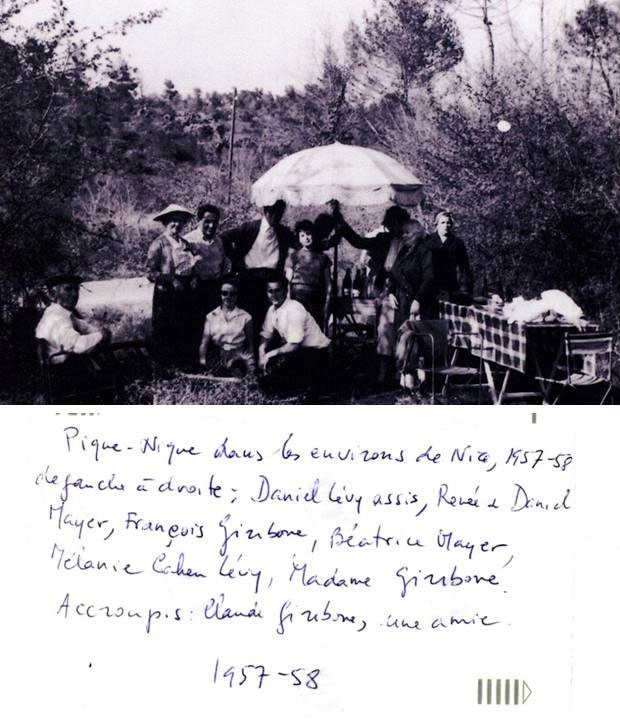 Pique-Nique dans les environs de Nice, 1957-58
de gauche à droite; Daniel Lévy assis, Renée e Daniel
Mayer, François Giribone, Béatrice Mayer,
Mélanie Cahen Lévy, Madame Giribone.
Accroupis: Claude Giribone, une amie.
1957-58